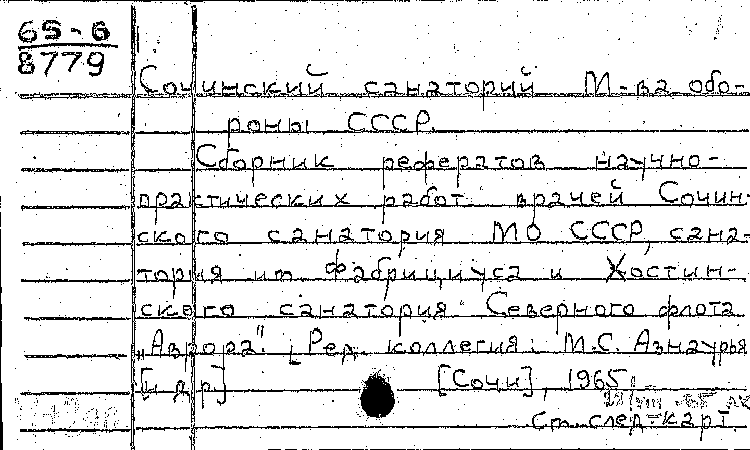 65-6
8779
Сочинский санаторий М-ва обо-
роны СССР.
Сборник рефератов научно-
практических работ врачей Сочин-
ского санатория МО СССР, сана-
тория им Фабрициуса и Хостин-
ского санатория Северного флота
„Аврора". [Ред. коллегия: М.С. Азнаурья
[и др]          [Сочи], 1965.
См. след. карт.